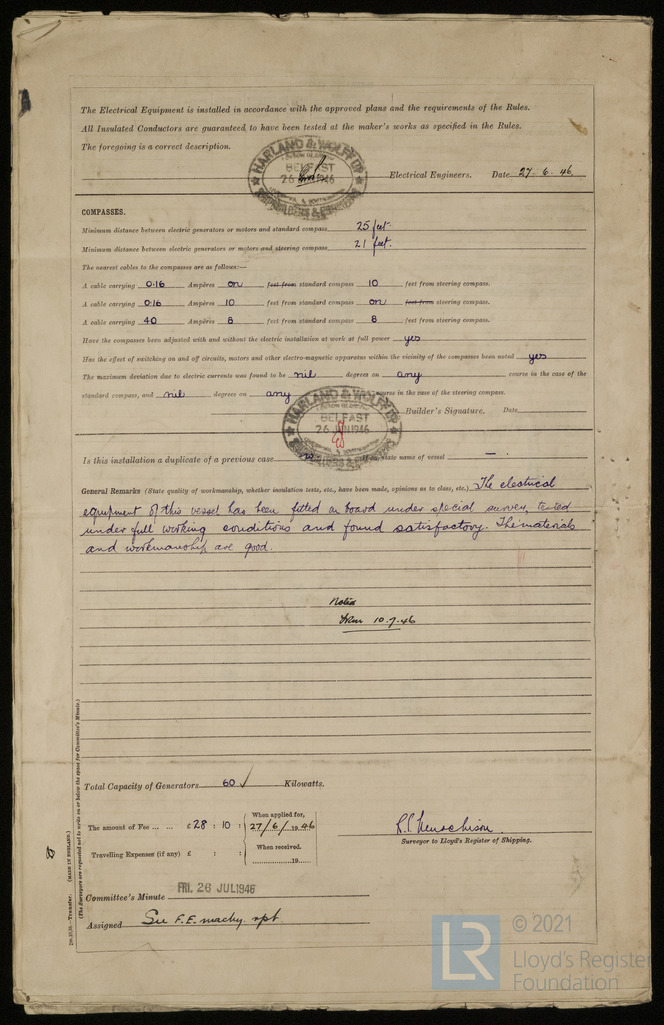 The Electrical Equipment is installed in accordance with the approved plans and the requirements of the Rules.
All Insulated Conductors are guaranteed to have been tested at the maker's works as specified in the Rules.
The foregoing is a correct description.
HARLAND & WOLFF LTD
BELFAST
26 JUN 1946
Electrical Engineers. Date 27. 6. 46.
COMPASSES.
Minimum distance between electric generators or motors and standard compass 25 feet.
Minimum distance between electric generators or motors and steering compass 21 feet.
The nearest cables to the compasses are as follows:—
A cable carrying 0.16 Ampères on feet from standard compass 10 feet from steering compass.
A cable carrying 0.16 Ampères 10 feet from standard compass on feet from steering compass.
A cable carrying 40 Ampères 8 feet from standard compass 8 feet from steering compass.
Have the compasses been adjusted with and without the electric installation at work at full power yes
Has the effect of switching on and off circuits, motors and other electro-magnetic apparatus within the vicinity of the compasses been noted yes
The maximum deviation due to electric currents was found to be nil degrees on any course in the case of the
standard compass, and nil degrees on any course in the case of the steering compass.
HARLAND & WOLFF LTD
BELFAST
26 JUN 1946
Builder's Signature. Date
Is this installation a duplicate of a previous case If so, state name of vessel —
General Remarks (State quality of workmanship, whether insulation tests, etc., have been made, opinions as to class, etc.) The electrical
equipment of this vessel has been fitted on board under special survey, tested
under full working conditions and found satisfactory. The materials
and workmanship are good.
Noted
10.7.46
Total Capacity of Generators 60 ✓ Kilowatts.
The amount of Fee ... ... £ 28 : 10 : When applied for, 27/6/1946
Travelling Expenses (if any) £ : : When received, 19
Surveyor to Lloyd's Register of Shipping.
Committee's Minute FRI. 26 JUL 1946
Assigned See F.E. machy. rpt.
(MADE IN ENGLAND.)
(The Surveyors are requested not to write on or below the space for Committee's Minute.)
LR
© 2021
Lloyd's Register
Foundation